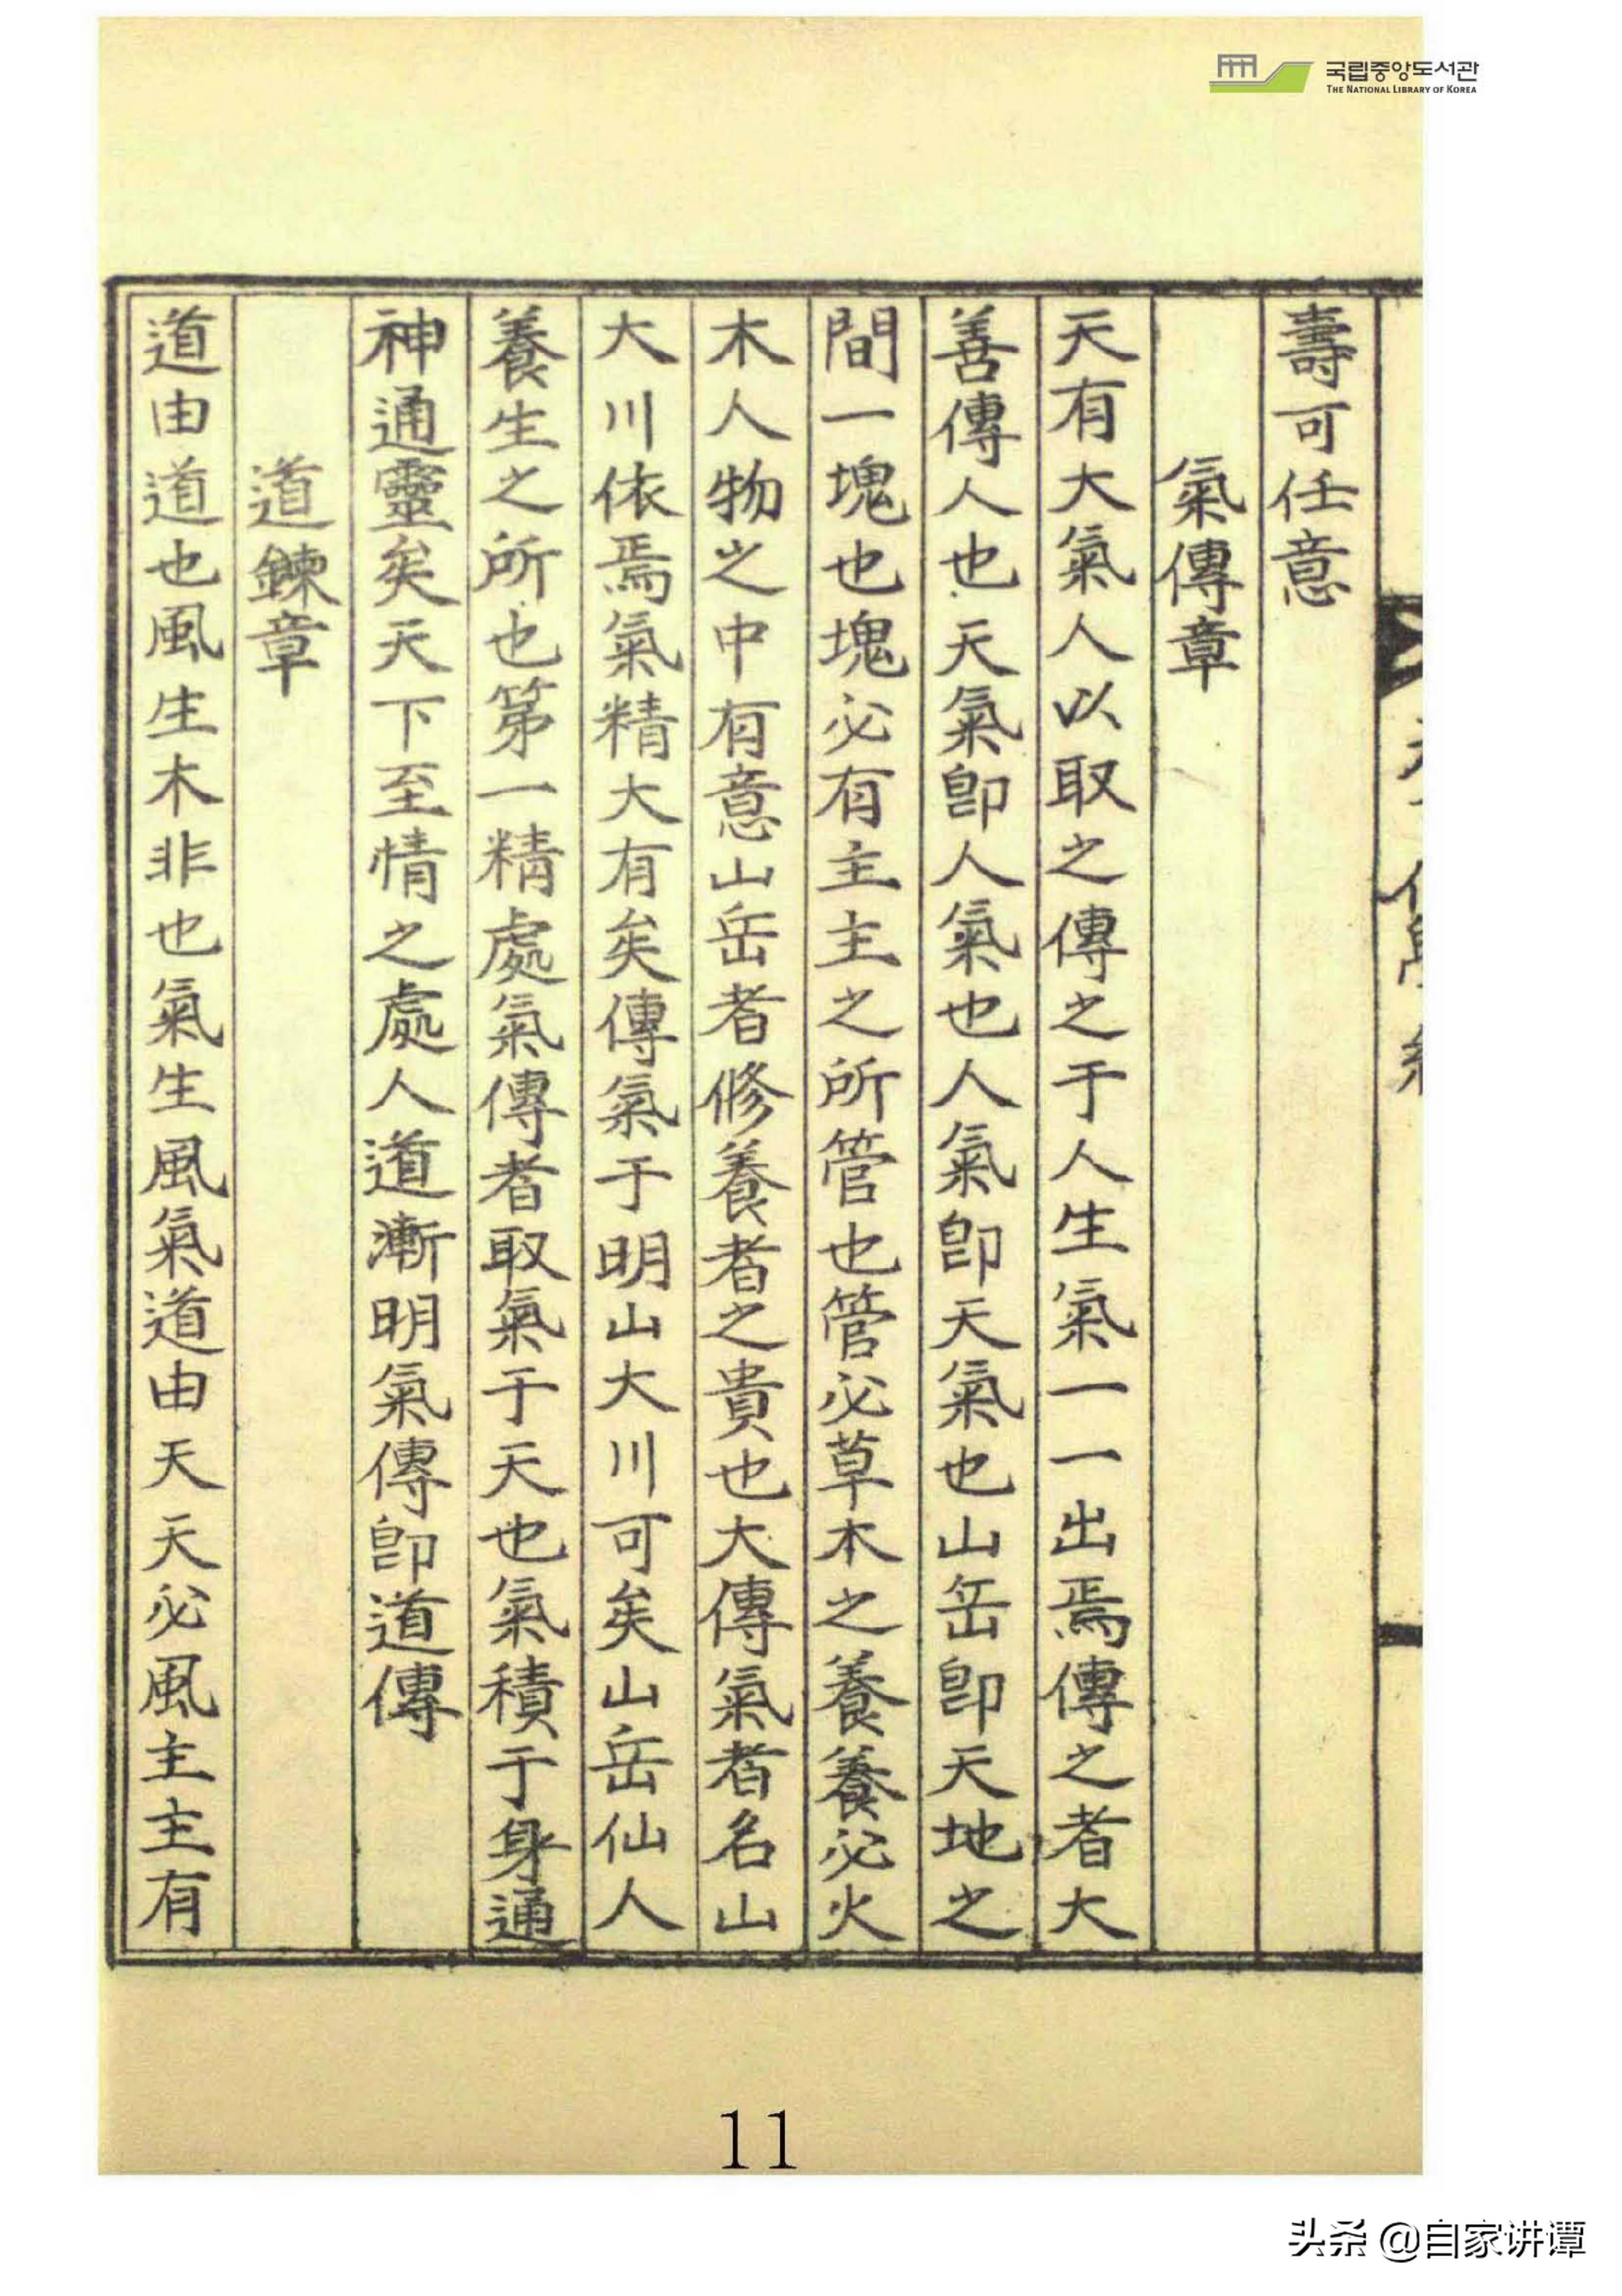 국립중앙도서관
THE NATIONAL LIBRARY OF KOREA
壽可任意
氣傳章
天有大氣人以取之傳之于人生氣一一出焉傳之者大
善傳人也天氣卽人氣也人氣卽天氣也山岳卽天地之
間一塊也塊必有主主之所管也管必草木之養養必火
木人物之中有意山岳者修養者之貴也大傳氣者名山
大川依焉氣精大有矣傳氣于明山大川可矣山岳仙人
養生之所也第一精處氣傳者取氣于天也氣積于身通
神通靈矣天下至情之處人道漸明氣傳卽道傳
道鍊章
道由道也風生木非也氣生風氣道由天天必風主主有
11
头条 @自家讲谭